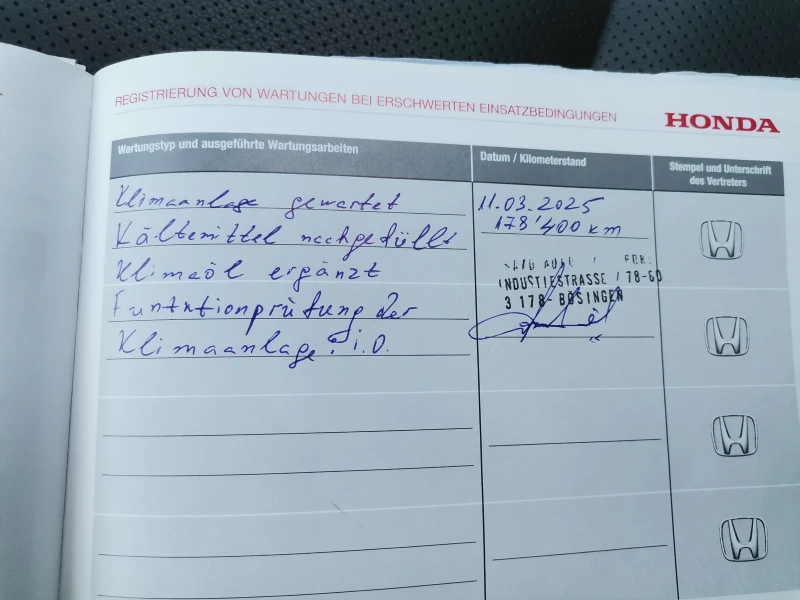 REGISTRIERUNG VON WARTUNGEN BEI ERSCHWERTEN EINSATZBEDINGUNGEN
HONDA
Wartungstyp und ausgeführte Wartungsarbeiten
Datum / Kilometerstand
Stempel und Unterschrift
des Vertreters
Klimaanlage gewartet
11.03.2025
Kältemittel nachgefüllt
178'400 km
Klimaöl ergänzt
INDUSTIESTRASSE 178-60
3 178- BÖSINGEN
der
Klimaanlage: i.O.